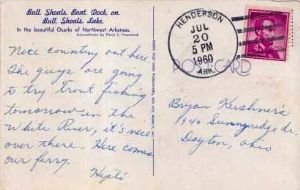 Bull Shoals Boat Dock on
Bull Shoals Lake
In the beautiful Ozarks of Northwest Arkansas.
HENDERSON
JUL
20
5 PM
1960
ARK.
POST CARD
Nice country out here.
The guys are going
to try trout fishing
tomorrow in the
White River, it's near
over there. Here comes
our ferry.
Bryan Kershner's
1940 Sunnyridge
Dayton, Ohio